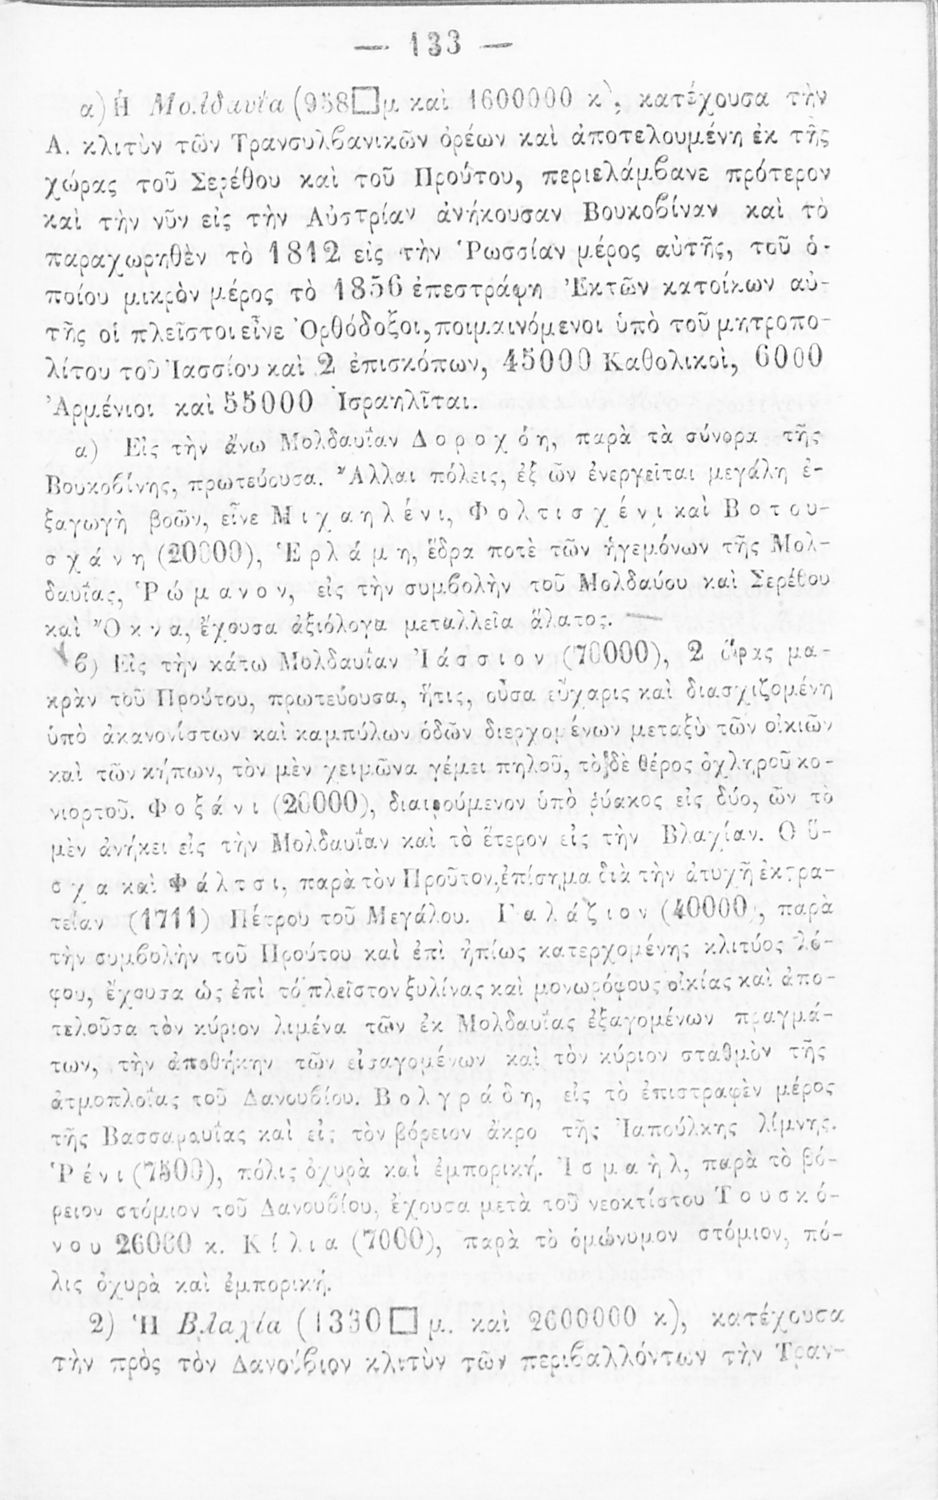 — 133 —
α) Ἡ Μολδαυΐα (958□μ. καὶ 1600000 κ), κατέχουσα τὴν
Α. κλιτὺν τῶν Τρανσυλβανικῶν ὀρέων καὶ ἀποτελουμένη ἐκ τῆς
χώρας τοῦ Σερέθου καὶ τοῦ Προύτου, περιελάμβανε πρότερον
καὶ τὴν νῦν εἰς τὴν Αὐστρίαν ἀνήκουσαν Βουκοβίναν καὶ τὸ
παραχωρηθὲν τὸ 1812 εἰς τὴν Ῥωσσίαν μέρος αὐτῆς, τοῦ ὁ-
ποίου μικρὸν μέρος τὸ 1856 ἐπεστράφη Ἐκτῶν κατοίκων αὐ-
τῆς οἱ πλεῖστοι εἶνε Ὀρθόδοξοι, ποιμαινόμενοι ὑπὸ τοῦ μητροπο-
λίτου τοῦ Ἰασσίου καὶ 2 ἐπισκόπων, 45000 Καθολικοὶ, 6000
Ἀρμένιοι καὶ 55000 Ἰσραηλῖται.
α) Εἰς τὴν ἄνω Μολδαυΐαν Δοροχόη, παρὰ τὰ σύνορα τῆς
Βουκοβίνης, πρωτεύουσα. Ἄλλαι πόλεις, ἐξ ὧν ἐνεργεῖται μεγάλη ἐ-
ξαγωγὴ βοῶν, εἶνε Μιχαηλένι, Φολτισχένι καὶ Βοτου-
σχάνη (20000), Ἐρλάμη, ἕδρα ποτὲ τῶν ἡγεμόνων τῆς Μολ-
δαυΐας, Ῥώμανον, εἰς τὴν συμβολὴν τοῦ Μολδαύου καὶ Σερέθου
καὶ Ὄκνα, ἔχουσα ἀξιόλογα μεταλλεῖα ἅλατος. —
β) Εἰς τὴν κάτω Μολδαυΐαν Ἰάσσιον (70000), 2 ὥρας μα-
κρὰν τοῦ Προύτου, πρωτεύουσα, ἥτις, οὖσα εὔχαρις καὶ διασχιζομένη
ὑπὸ ἀκανονίστων καὶ καμπύλων ὁδῶν διερχομένων μεταξὺ τῶν οἰκιῶν
καὶ τῶν κήπων, τὸν μὲν χειμῶνα γέμει πηλοῦ, τὸ δὲ θέρος ὀχληροῦ κο-
νιορτοῦ. Φοξάνι (20000), διαιρούμενον ὑπὸ ῥύακος εἰς δύο, ὧν τὸ
μὲν ἀνήκει εἰς τὴν Μολδαυΐαν καὶ τὸ ἕτερον εἰς τὴν Βλαχίαν. Οὕ-
σχα καὶ Φάλτσι, παρὰ τὸν Προῦτον, ἐπίσημα διὰ τὴν ἀτυχῆ ἐκτρα-
τείαν (1711) Πέτρου τοῦ Μεγάλου. Γαλάζιον (40000), παρὰ
τὴν συμβολὴν τοῦ Προύτου καὶ ἐπὶ ἠπίως κατερχομένης κλιτύος λό-
φου, ἔχουσα ὡς ἐπὶ τὸ πλεῖστον ξυλίνας καὶ μονωρόφους οἰκίας καὶ ἀπο-
τελοῦσα τὸν κύριον λιμένα τῶν ἐκ Μολδαυΐας ἐξαγομένων πραγμά-
των, τὴν ἀποθήκην τῶν εἰσαγομένων καὶ τὸν κύριον σταθμὸν τῆς
ἀτμοπλοΐας τοῦ Δανουβίου. Βολγράδη, εἰς τὸ ἐπιστραφὲν μέρος
τῆς Βασσαραυΐας καὶ εἰς τὸν βόρειον ἄκρο τῆς Ἰαπούλκης λίμνης.
Ῥένι (7500), πόλις ὀχυρὰ καὶ ἐμπορική. Ἰσμαὴλ, παρὰ τὸ βό-
ρειον στόμιον τοῦ Δανουβίου, ἔχουσα μετὰ τοῦ νεοκτίστου Τουσκό-
νου 26000 κ. Κίλια (7000), παρὰ τὸ ὁμώνυμον στόμιον, πό-
λις ὀχυρὰ καὶ ἐμπορική.
2) Ἡ Βλαχία (1330□μ. καὶ 2600000 κ), κατέχουσα
τὴν πρὸς τὸν Δανούβιον κλιτὺν τῶν περιβαλλόντων τὴν Τραν-